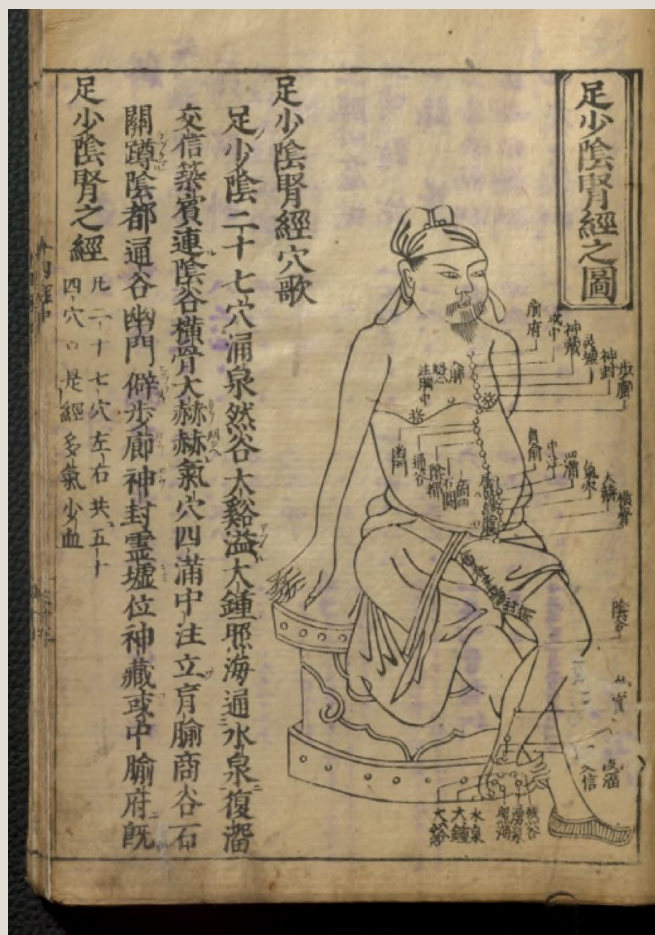 足少陰腎經之圖
俞府
或中
神藏
灵墟
神封
步廊
肓俞
中注
四滿
氣穴
大赫
橫骨
幽門
通谷
陰都
石關
商曲
陰谷
然谷
湧泉
照海
水泉
大鍾
大谿
足少陰腎經穴歌
足少陰二十七穴涌泉然谷太谿溢大鍾照海通水泉復溜
交信築賓連陰谷橫骨大赫赫氣穴四滿中注立肓腧商谷石
關蹲陰都通谷幽門僻步廊神封霊墟位神藏或中腧府既
足少陰腎之經
凡二十七穴左右共五十
四穴○是經多氣少血